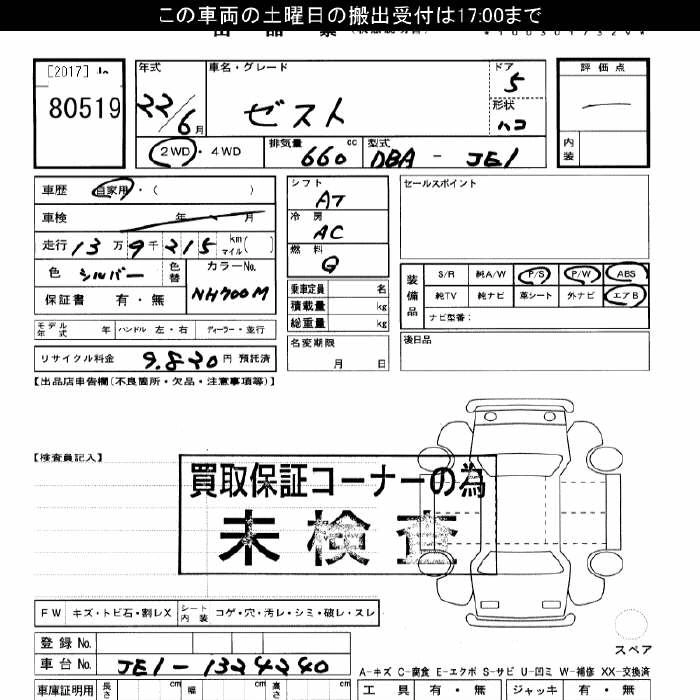 この車両の土曜日の搬出受付は17:00まで
[2017]
80519
年式 22/6月
車名・グレード ゼスト
ドア 5
形状 ハコ
評価点
内装
2WD・4WD
排気量 660 cc
型式 DBA-JE1
車歴 自家用・( )
車検 年 月
走行 13万9千215 km マイル( )
色 シルバー 色替
カラーNo. NH700M
保証書 有・無
モデル年式 年 ハンドル 左・右 ディーラー・並行
リサイクル料金 9,820円 預託済
シフト AT
冷房 AC
燃料 G
乗車定員 名
積載量 kg
総重量 kg
名変期限
月 日
セールスポイント
装備品
S/R 純A/W P/S P/W ABS
純TV 純ナビ 革シート 外ナビ エアB
ナビ型番:
後日品
【出品店申告欄(不良箇所・欠品・注意事項等)】
【検査員記入】
買取保証コーナーの為
未検査
FW キズ・トビ石・割レX シート内装 コゲ・穴・汚レ・シミ・破レ・スレ
登録No.
車台No. JE1-1324240
スペア
A-キズ C-腐食 E-エクボ S-サビ U-凹ミ W-補修 XX-交換済
車庫証明用 長さ cm 幅 cm 高さ cm
工具 有・無 ジャッキ 有・無